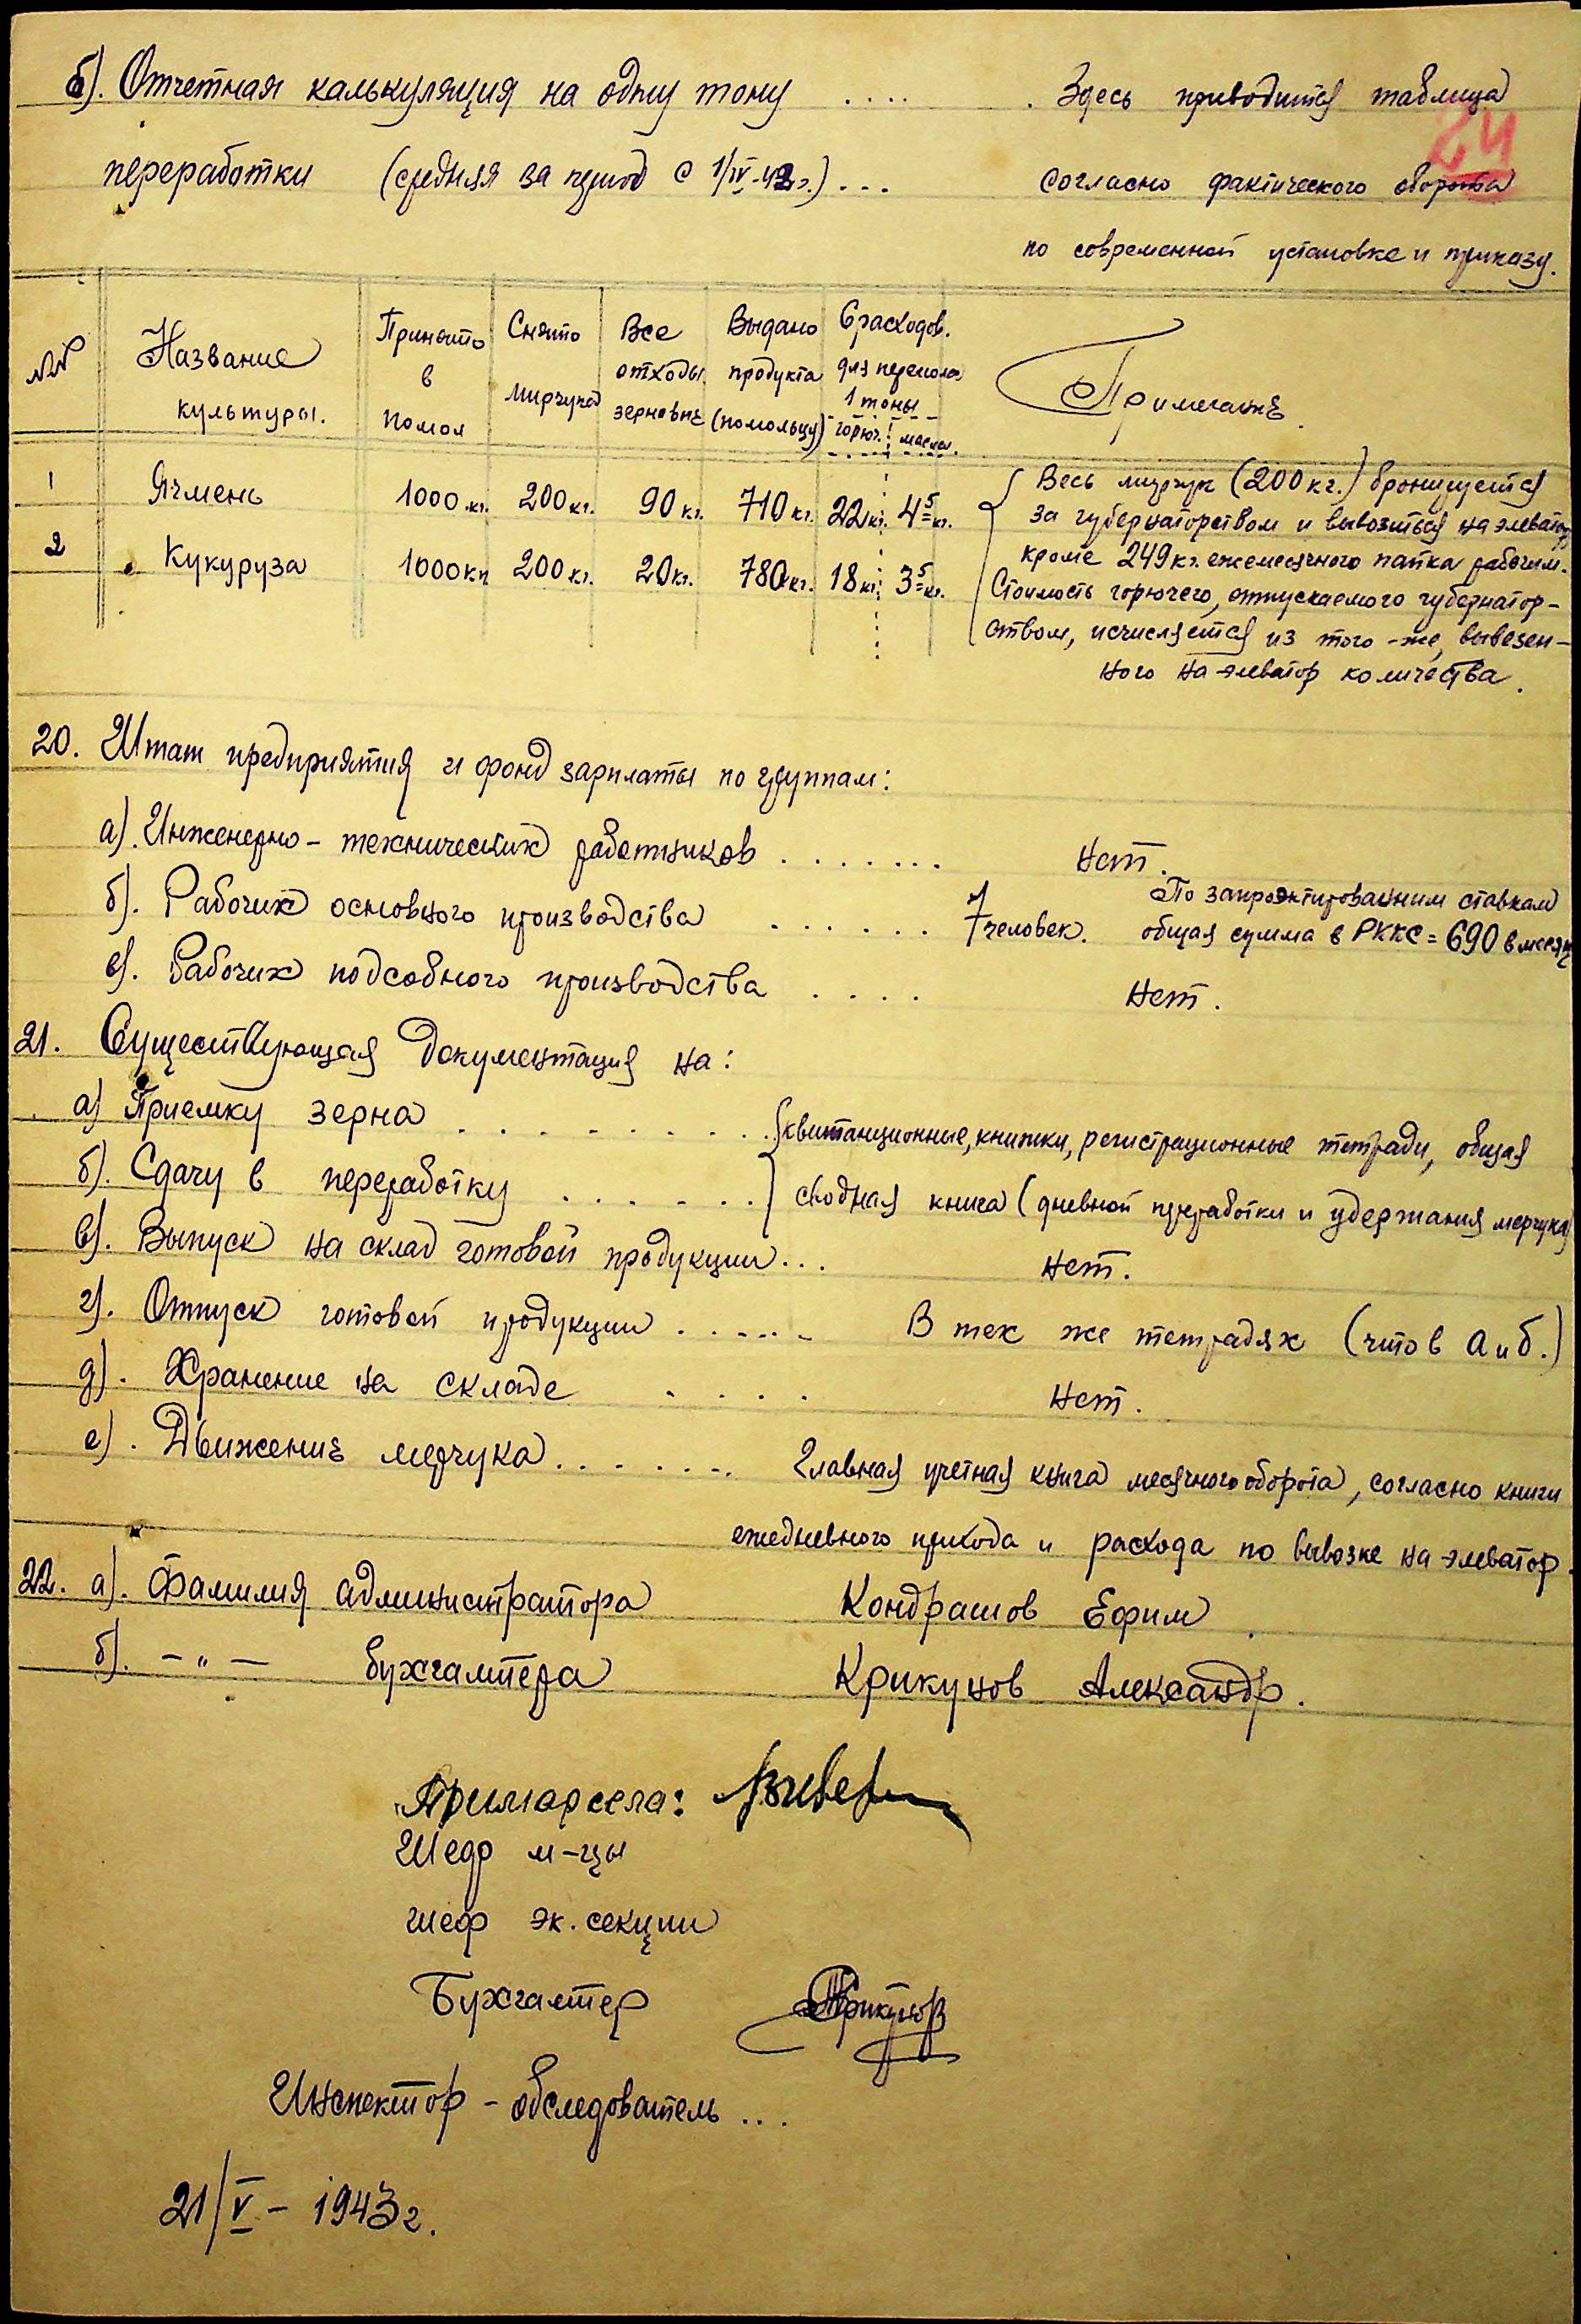 б). Отчетная калькуляция на одну тону .... . Здесь приводится таблица
24
переработки (средняя за период с 1/IV-42 г.) ... согласно фактического оборота
по современной установке и приказу.
№№
Название культуры.
Принято в помол
Снято мирчука
Все отходы зерновые
Выдано продукта (помольцу)
Срасходов. для перемола 1 тоны
горюч. масла.
Примечание.
1 Ячмень 1000 кг. 200 кг. 90 кг. 710 кг. 22 кг. 4⁵ кг.
2 Кукуруза 1000 кг 200 кг. 20 кг. 780 кг. 18 кг. 3⁵ кг.
Весь мирчук (200 кг.) бронируется
за губернаторством и вывозится на элеватор
кроме 249 кг. ежемесячного пайка рабочим.
Стоимость горючего, отпускаемого губернатор-
ством, исчисляется из того-же, вывезен-
ного на элеватор количества.
20. Штат предприятия и фонд зарплаты по группам:
а). Инженерно-технических работников ....... нет.
б). Рабочих основного производства ...... 7 человек. По запроэктированним ставкам
общая сумма в РККС = 690 в месяц
в). Рабочих подсобного производства .... нет.
21. Существующая документация на:
а) Приемку зерна ......... квитанционные, книжки, регистрационные тетради, общая
б). Сдачу в переработку ...... сводная книга (дневной переработки и удержания мерчука)
в). Выпуск на склад готовой продукции ... нет.
г). Отпуск готовой продукции ...... В тех же тетрадях (что в а и б.)
д). Хранение на складе .... нет.
е). Движение мерчука ....... Главная учетная книга месячного оборота, согласно книги
ежедневного прихода и расхода по вывозке на элеватор.
22. а). Фамилия администратора Кондрашов Ефим.
б). -„- бухгалтера Крикунов Александр.
Примарсела:
Шеф м-цы
шеф эк. секции
Бухгалтер Крикунов
Инспектор-обследователь ...
21/V-1943 г.